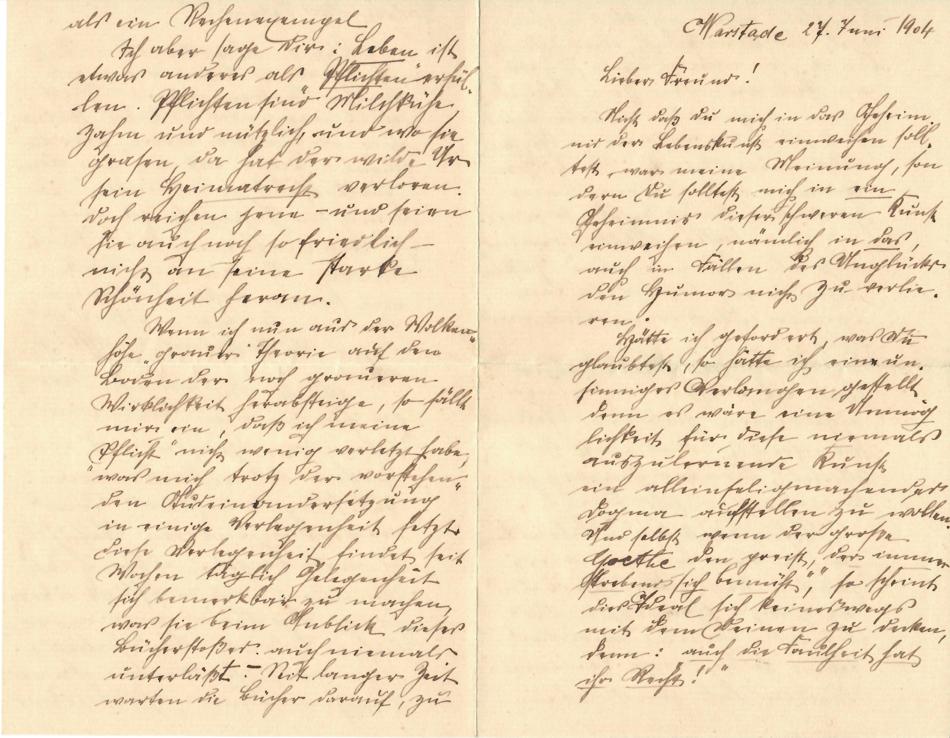 Warstade 27. Juni 1904
Lieber Freund!
Nicht daß du mich in das Geheim-
nis der Lebenskunst einweihen soll-
test, war meine Meinung, son
dern Du solltest mich in ein
Geheimnis dieser schweren Kunst
einweihen, nämlich in das,
auch in Fällen des Unglücks
den Humor nicht zu verlie-
ren.
Hätte ich gefordert, was Du
glaubtest, so hätte ich ein un-
sinniges Verlangen gestellt
denn es wäre eine Unmög
lichkeit für diese niemals
auszulernende Kunst
ein alleinseligmachendes
Dogma aufstellen zu wollen.
Und selbst wenn der große
Goethe den preist, „der immer
strebend sich bemüht", so scheint
dies Ideal sich keineswegs
mit dem Deinen zu decken,
denn: „auch die Faulheit hat
ihr Recht!"
als ein Rechenexempel
Ich aber sage Dir: Leben ist
etwas anderes als „Pflichten" erfül-
len. Pflichten sind Milchkühe
zahm und nützlich, und wo sie
grasen, da hat der wilde Ur
sein Heimatrecht verloren.
Doch reichen jene – und seien
sie auch noch so friedlich –
nicht an seine starke
Schönheit heran.
Wenn ich nun aus der Wolken-
höhe „grauer" Theorie auf den
Boden der noch graueren
Wirklichkeit herabsteige, so fällt
mir ein, daß ich meine
„Pflicht" nicht wenig verletzt habe,
was mich trotz der „vorstehen-
den Auseinandersetzung"
in einige Verlegenheit setzt.
Diese Verlegenheit findet seit
Wochen täglich Gelegenheit
sich bemerkbar zu machen,
was sie beim Anblick dieses
Bücherstoßes auch niemals
unterläßt. – Seit langer Zeit
warten die Bücher darauf, zu